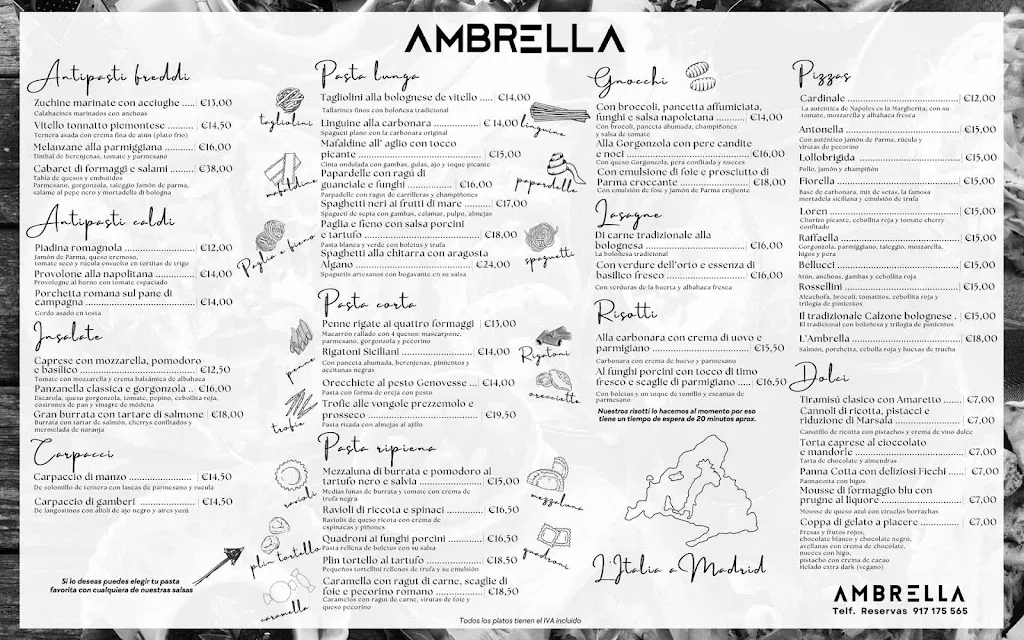 AMBRELLA
Antipasti freddi
Zuchine marinate con acciughe ..... €13,00
Calabacines marinados con anchoas
Vitello tonnatto piemontese .......... €14,50
Ternera asada con crema fina de atún (plato frío)
Melanzane alla parmiggiana ......... €16,00
Timbal de berenjenas, tomate y parmesano
Cabaret di formaggi e salami ........ €38,00
Tabla de quesos y embutidos
Parmesano, gorgonzola, taleggio Jamón de parma,
salame al pepe nero y mortadella di bologna
Antipasti caldi
Piadina romagnola ........................ €12,00
Jamón de Parma, queso cremoso,
tomate seco y rúcula envuelto en tortitas de trigo
Provolone alla napolitana .............. €14,00
Provologne al horno con tomate especiado
Porchetta romana sul pane di
campagna ...................................... €14,00
Cerdo asado en tosta
Insalate
Caprese con mozzarella, pomodoro
e basilico ........................................ €12,50
Tomate con mozzarella y crema balsámica de albahaca
Panzanella classica e gorgonzola .. €16,00
Escarola, queso gorgonzola, tomate, pepino, cebollita roja,
costrones de pan y vinagre de módena
Gran burrata con tartare di salmone €18,00
Burrata con tartar de salmón, cherrys confitados y
mermelada de naranja
Carpacci
Carpaccio di manzo ...................... €14,50
De solomillo de ternera con lascas de parmesano y rucula
Carpaccio di gamberi .................... €14,50
De langostinos con allioli de ajo negro y aires yuzú
Si lo deseas puedes elegir tu pasta
favorita con cualquiera de nuestras salsas
tagliolini
mafaldine
Paglia e fieno
penne
trofie
ravioli
plin tortello
caramella
Pasta lunga
Tagliolini alla bolognese de vitello ..... €14,00
Tallarines finos con boloñesa tradicional
Linguine alla carbonara ..................... €14,00
Spagueti plano con la carbonara original
Mafaldine all' aglio con tocco
picante ............................................. €15,00
Cinta ondulada con gambas, gulas, ajo y toque picante
Papardelle con ragú di
guanciale e funghi ......................... €16,00
Parpadelle con ragu de carrilleras y champiñones
Spaghetti neri al frutti di mare ..... €17,00
Spagueti de sepia con gambas, calamar, pulpo, almejas
Paglia e fieno con salsa porcini
e tartufo .......................................... €18,00
Pasta blanca y verde con boletus y trufa
Spaghetti alla chitarra con aragosta
Algano ............................................. €24,00
Spaguetis artesanos con bogavante en su salsa
Pasta corta
Penne rigate ai quattro formaggi €13,00
Macarrón rallado con 4 quesos: mascarpone,
parmesano, gorgonzola y pecorino
Rigatoni Siciliani ........................... €14,00
Con panceta ahumada, berenjenas, pimientos y
aceitunas negras
Orecchiete al pesto Genovesse ... €14,00
Pasta con forma de oreja con pesto
Trofie alle vongole prezzemolo e
prosseco ......................................... €19,50
Pasta rizada con almejas al ajillo
Pasta ripiena
Mezzaluna di burrata e pomodoro al
tartufo nero e salvia ........................ €15,00
Medias lunas de burrata y tomate con crema de
trufa negra
Ravioli di riccota e spinaci ............. €16,50
Raviolis de queso ricota con crema de
espinacas y piñones
Quadroni ai funghi porcini ............ €16,50
Pasta rellena de boletus con su salsa
Plin tortello al tartufo .................... €18,50
Pequeños tortellini rellenos de trufa y su emulsión
Caramella con ragut di carne, scaglie di
foie e pecorino romano .................. €18,50
Caramelos con ragut de carne, virutas de foie y
queso pecorino
linguine
papardelle
spaguetti
Rigatoni
orecciette
mezzaluna
quadroni
Gnocchi
Con broccoli, pancetta affumiciata,
funghi e salsa napoletana ............... €14,00
Con brocoli, panceta ahumada, champiñones
y salsa de tomate
Alla Gorgonzola con pere candite
e noci ............................................... €16,00
Con queso Gorgonzola, pera confitada y nueces
Con emulsione di foie e prosciutto di
Parma croccante ............................. €18,00
Con emulsión de foie y jamón de Parma crujiente
Lasagne
Di carne tradizionale alla
bolognesa ....................................... €16,00
La boloñesa tradicional
Con verdure dell'orto e essenza di
basilico fresco ................................ €16,00
Con verduras de la huerta y albahaca fresca
Risotti
Alla carbonara con crema di uovo e
parmigiano ..................................... €15,50
Carbonara con crema de huevo y parmesano
Al funghi porcini con tocco di timo
fresco e scaglie di parmigiano ..... €16,50
Con boletus y un toque de tomillo y escamas de
parmesano
Nuestros risotti lo hacemos al momento por eso
tiene un tiempo de espera de 20 minutos aprox.
L'Italia a Madrid
Pizzas
Cardinale ........................................ €12,00
La autentica de Napoles es la Margherita, con su
tomate, mozzarella y albahaca fresca
Antonella ........................................ €15,00
Con auténtico jamón de Parma, rúcula y
virutas de pecorino
Lollobrigida .................................... €15,00
Pollo, jamón y champiñón
Fiorella ........................................... €15,00
Base de carbonara, mix de setas, la famosa
mortadela siciliana y emulsión de trufa
Loren .............................................. €15,00
Chorizo picante, cebollita roja y tomate cherry
confitado
Raffaella ......................................... €15,00
Gorgonzola, parmiggiano, taleggio, mozzarella,
higos y pera
Bellucci .......................................... €15,00
Atón, anchoas, gambas y cebollita roja
Rossellini ........................................ €15,00
Alcachofa, brocoli, tomatitos, cebollita roja y
trilogía de pimientos
Il tradizionale Calzone bolognese . €15,00
El tradicional con boloñesa y trilogía de pimientos
L'Ambrella ...................................... €18,00
Salmón, porchetta, cebolla roja y huevas de trucha
Dolci
Tiramisú clasico con Amaretto ...... €7,00
Cannoli di ricotta, pistacci e
riduzione di Marsala ...................... €7,00
Canutillo de ricotta con pistachos y crema de vino dulce
Torta caprese al cioccolato
e mandorle ..................................... €7,00
Tarta de chocolate y almendras
Panna Cotta con deliziosi Ficchi ... €7,00
Pannacotta con higos
Mousse di formaggio blu con
prugne al liquore ............................ €7,00
Mousse de queso azul con ciruelas borrachas
Coppa di gelato a piacere .............. €7,00
Fresas y frutos rojos,
chocolate blanco y chocolate negro,
avellanas con crema de chocolate,
nueces con higo,
pistacho con crema de cacao
Helado extra dark (vegano)
AMBRELLA
Telf. Reservas 917 175 565
Todos los platos tienen el IVA incluido